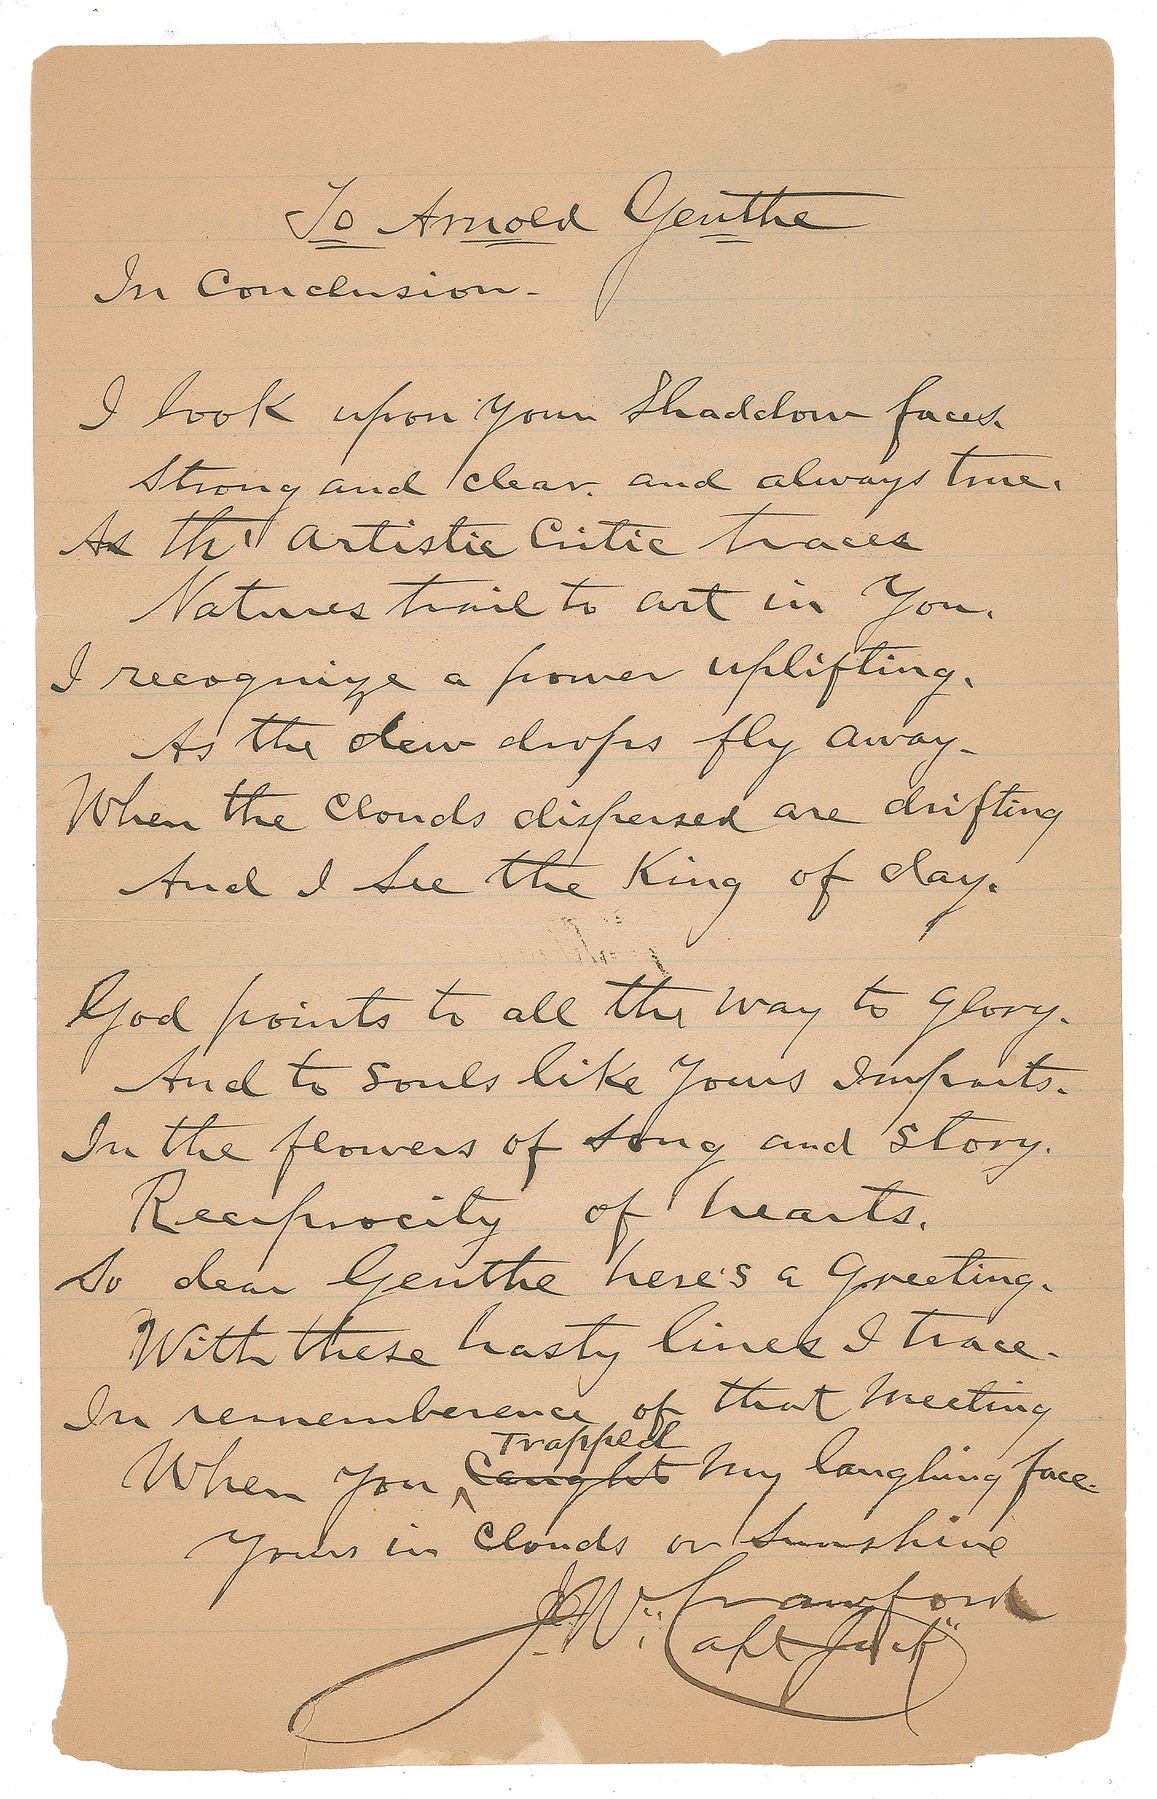 To Arnold Genthe
In Conclusion-
I look upon your Shaddow faces.
Strong and clear. and always true.
As th' artistic Critic traces
Natures trail to art in You.
I recognize a power uplifting.
As the dew drops fly away-
When the Clouds dispersed are drifting
And I See the King of day.
God points to all the way to Glory.
And to Souls like Yours Imparts.
In the flowers of Song and Story.
Reciprocity of hearts.
So dear Genthe here's a Greeting.
With these hasty lines I trace-
In rememberence of that Meeting
Trapped
When You Caught My laughing face-
Yours in Clouds or Sunshine
J. W. Crawford
"Capt Jack"